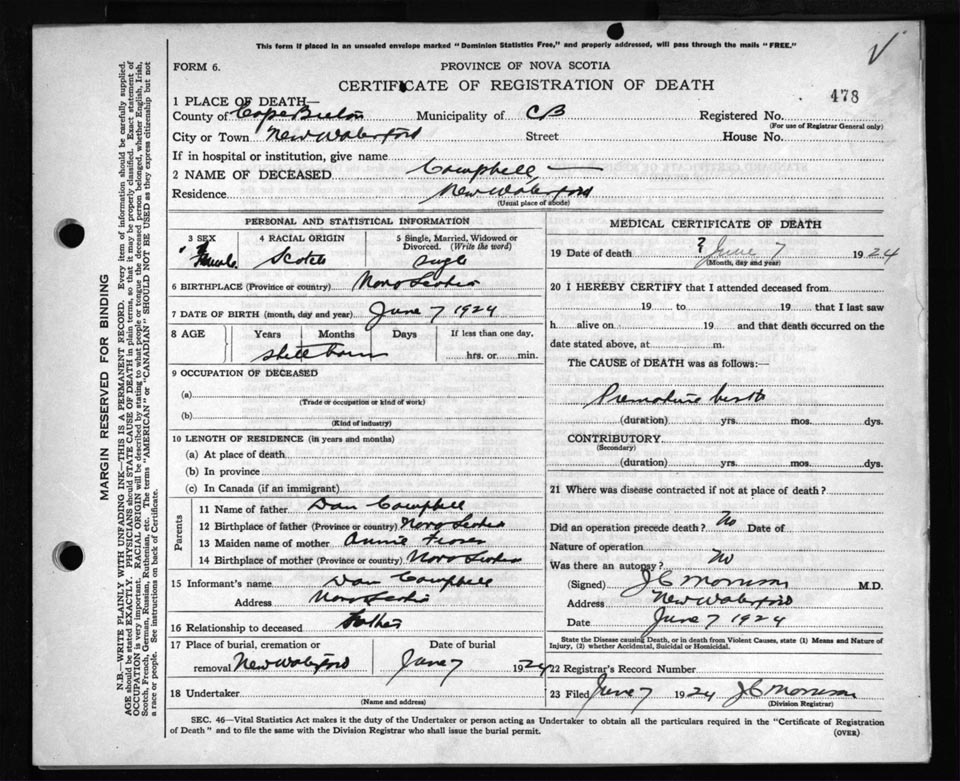 This form if placed in an unsealed envelope marked "Dominion Statistics Free," and properly addressed, will pass through the mails "FREE."
FORM 6.
PROVINCE OF NOVA SCOTIA
CERTIFICATE OF REGISTRATION OF DEATH
478
1 PLACE OF DEATH—
County of Cape Breton Municipality of CB Registered No.
(For use of Registrar General only)
City or Town New Waterford Street House No.
If in hospital or institution, give name
2 NAME OF DECEASED. Campbell —
Residence New Waterford
(Usual place of abode)
PERSONAL AND STATISTICAL INFORMATION
3 SEX 4 RACIAL ORIGIN 5 Single, Married, Widowed or Divorced. (Write the word)
Female Scotch single
6 BIRTHPLACE (Province or country) Nova Scotia
7 DATE OF BIRTH (month, day and year) June 7 1924
8 AGE Years Months Days If less than one day.
still born hrs. or min.
9 OCCUPATION OF DECEASED
(a)
(Trade or occupation or kind of work)
(b)
(Kind of industry)
10 LENGTH OF RESIDENCE (in years and months)
(a) At place of death
(b) In province
(c) In Canada (if an immigrant)
Parents
11 Name of father Dan Campbell
12 Birthplace of father (Province or country) Nova Scotia
13 Maiden name of mother Annie
14 Birthplace of mother (Province or country) Nova Scotia
15 Informant's name Dan Campbell
Address Nova Scotia
16 Relationship to deceased Father
17 Place of burial, cremation or removal New Waterford Date of burial June 7 1924
18 Undertaker
(Name and address)
MEDICAL CERTIFICATE OF DEATH
19 Date of death ? June 7 1924
(Month, day and year)
20 I HEREBY CERTIFY that I attended deceased from
19 to 19 that I last saw
h alive on 19 and that death occurred on the
date stated above, at m.
The CAUSE of DEATH was as follows:—
Premature birth
(duration) yrs. mos. dys.
CONTRIBUTORY
(Secondary)
(duration) yrs. mos. dys.
21 Where was disease contracted if not at place of death?
Did an operation precede death? No Date of
Nature of operation
Was there an autopsy? No
(Signed) J C Morrison M.D.
Address New Waterford
Date June 7 1924
State the Disease causing Death, or in death from Violent Causes, state (1) Means and Nature of
Injury, (2) whether Accidental, Suicidal or Homicidal.
22 Registrar's Record Number
23 Filed June 7 1924 J C Morrison
(Division Registrar)
SEC. 46—Vital Statistics Act makes it the duty of the Undertaker or person acting as Undertaker to obtain all the particulars required in the "Certificate of Registration
of Death" and to file the same with the Division Registrar who shall issue the burial permit.
(OVER)
MARGIN RESERVED FOR BINDING
N.B.—WRITE PLAINLY WITH UNFADING INK—THIS IS A PERMANENT RECORD. Every item of information should be carefully supplied.
AGE should be stated EXACTLY. PHYSICIANS should STATE CAUSE OF DEATH in plain terms, so that it may be properly classified. Exact statement of
OCCUPATION is very important. RACIAL ORIGIN will be described by stating to what people or tongue the deceased person belonged, whether English, Irish,
Scotch, French, German, Russian, Ruthenian, etc. The terms "AMERICAN" or "CANADIAN" SHOULD NOT BE USED as they express citizenship but not
a race or people. See instructions on back of Certificate.